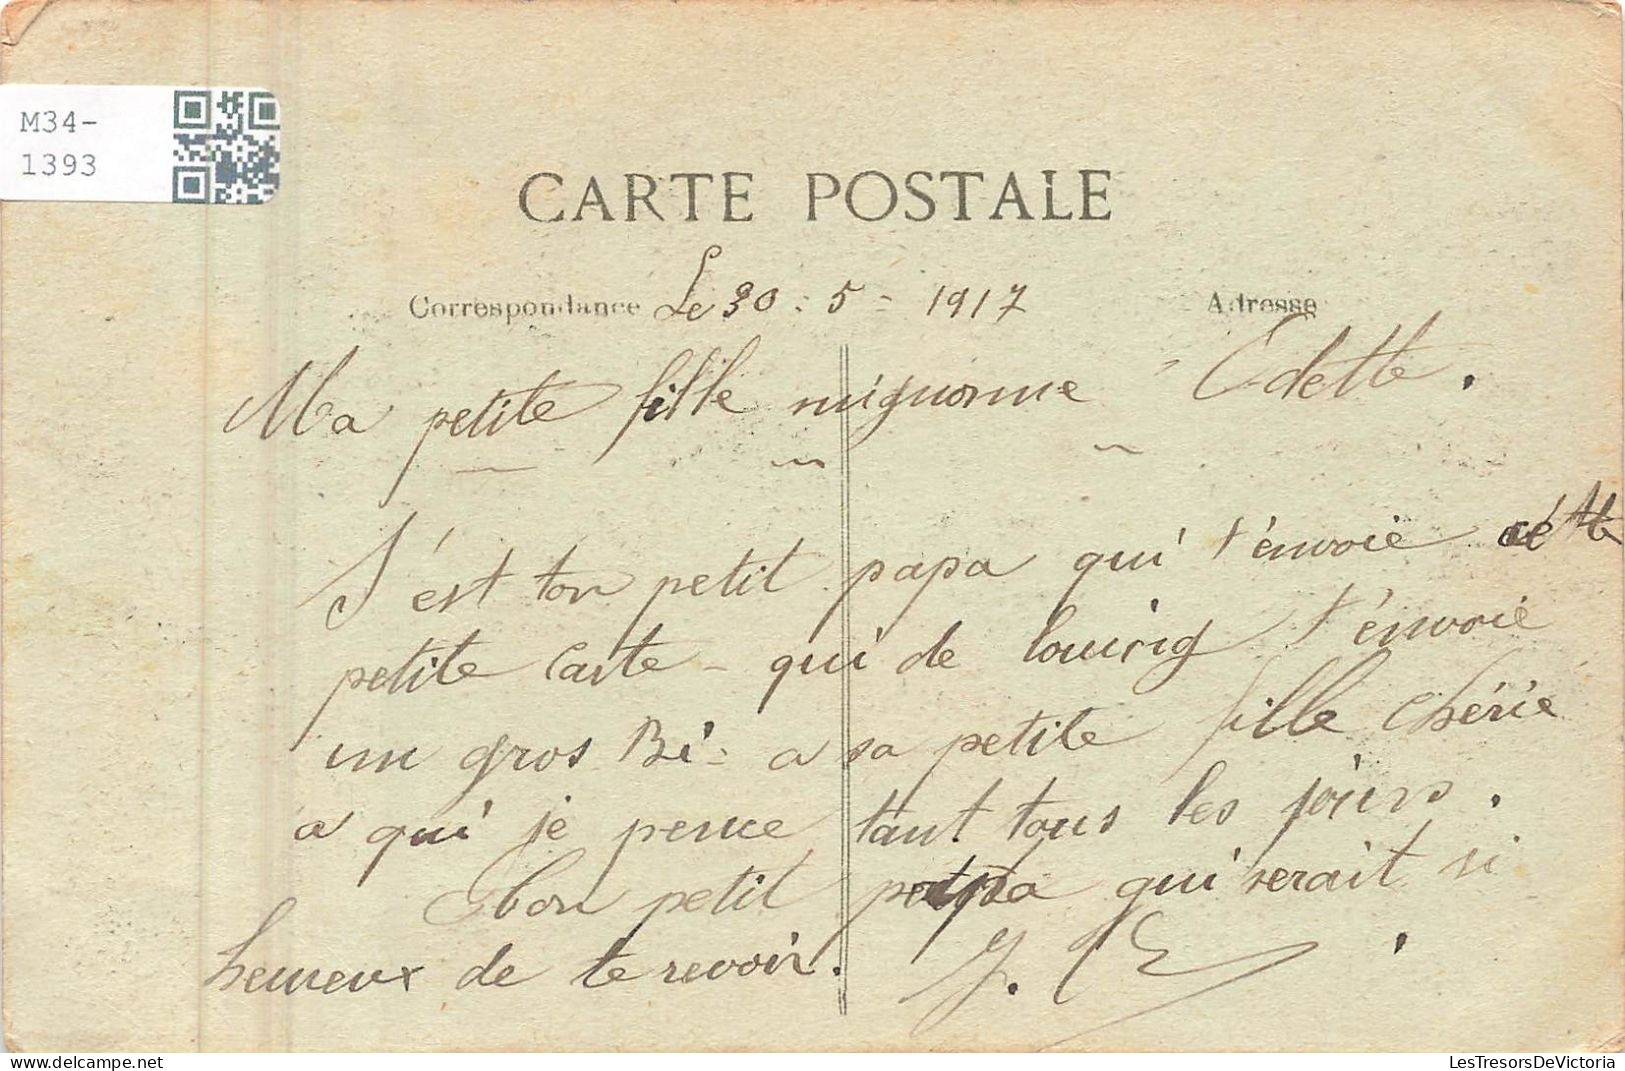 M34-
1393
CARTE POSTALE
Correspondance Le 30 : 5 = 1917 Adresse
Ma petite fille mignonne Odette.
S'est ton petit papa qui t'énvoie cétte
petite Carte - qui de t'énvoie
un gros Bé = a sa petite fille chérie
a qui je pense tant tous les jours.
ton petit papa qui serait si
heureux de te revoir.
LesTresorsDeVictoria
www.delcampe.net